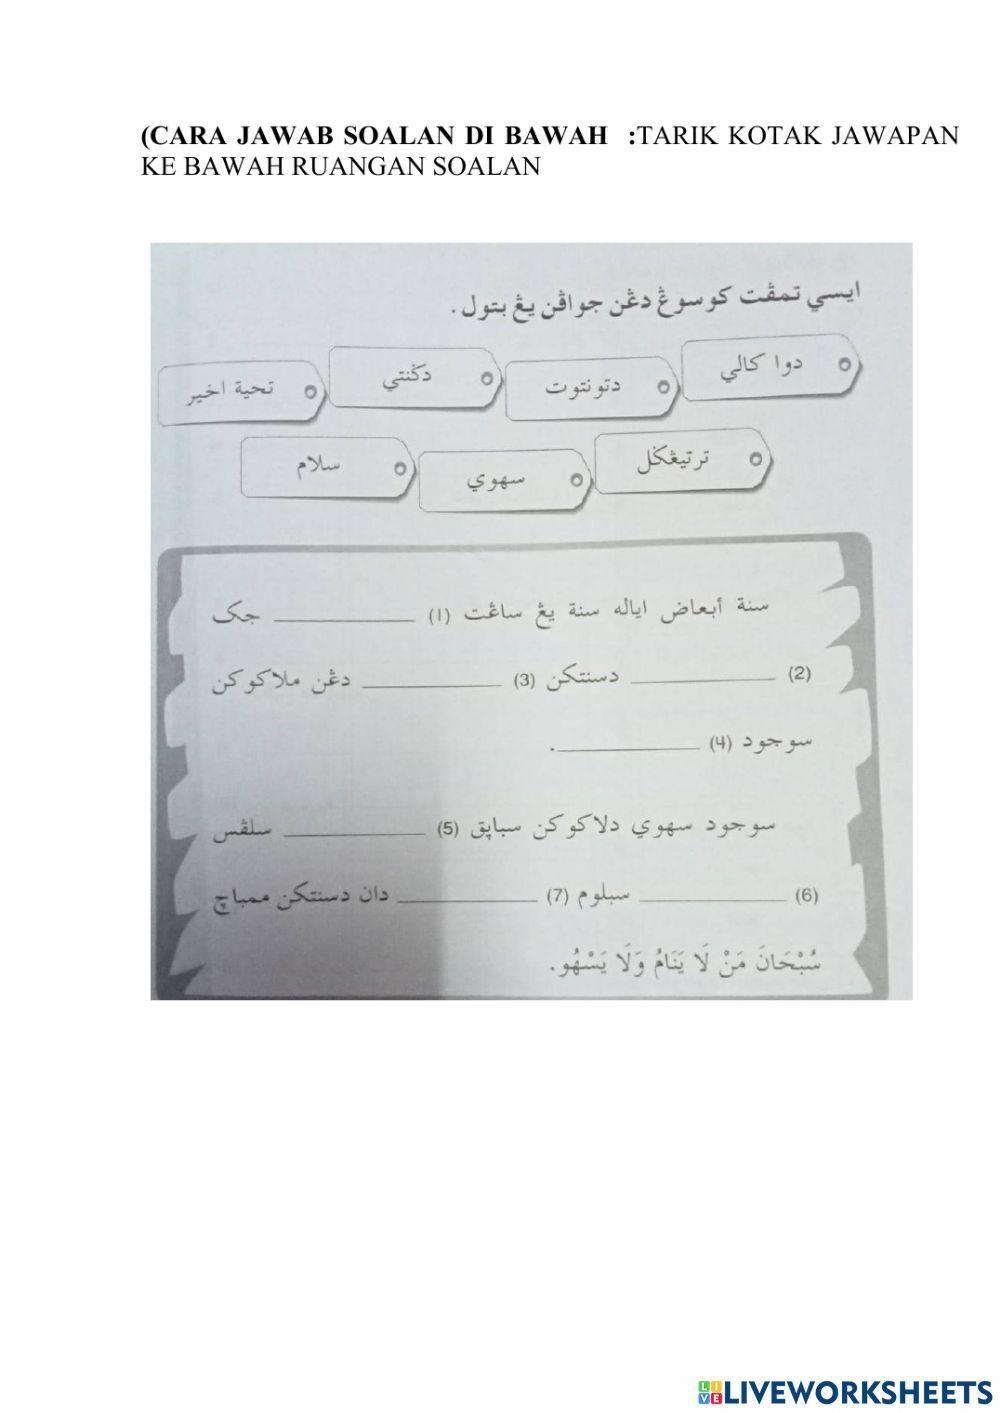 (CARA JAWAB SOALAN DI BAWAH :TARIK KOTAK JAWAPAN
KE BAWAH RUANGAN SOALAN
ايسي تمڤت كوسوڠ دڠن جواڤن يڠ بتول.
دوا كالي
دتونتوت
دݢنتي
تحية اخير
ترتيڠݢل
سهوي
سلام
سنة أبعاض اياله سنة يڠ ساڠت (1) __________ جک
(2) __________ دسنتكن (3) __________ دڠن ملاكوكن
سوجود (4) __________.
سوجود سهوي دلاكوكن سباپق (5) __________ سلڤس
(6) __________ سبلوم (7) __________ دان دسنتكن ممباچ
سُبْحَانَ مَنْ لَا يَنَامُ وَلَا يَسْهُو.
LIVE LIVEWORKSHEETS